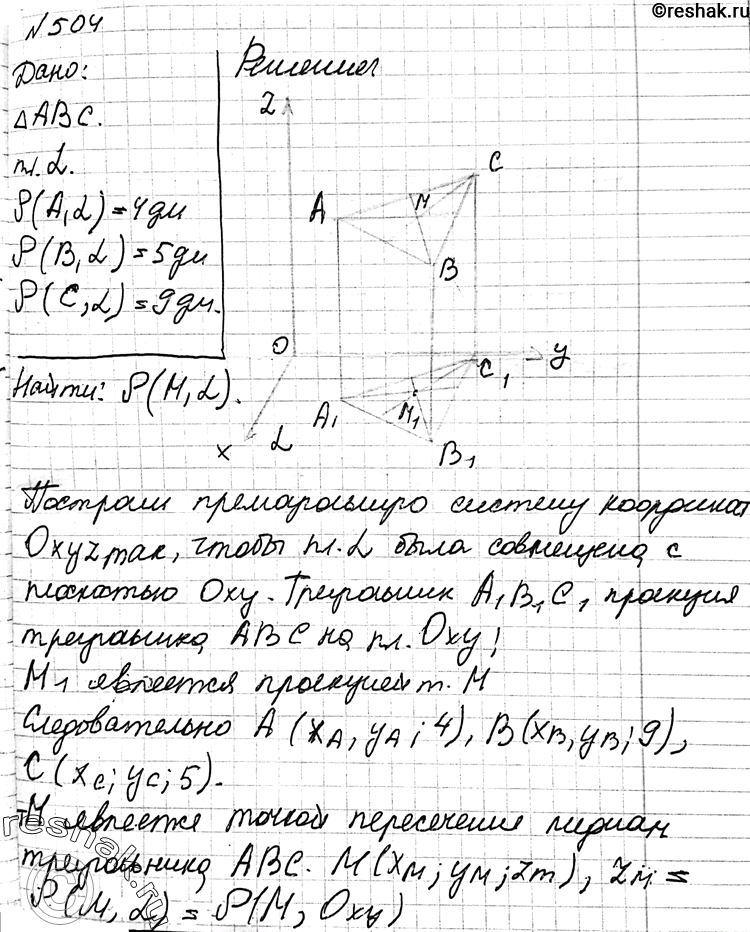 ©reshak.ru
№504
Дано:
△ABC.
пл. α.
ρ(A, α) = 4 дм
ρ(B, α) = 5 дм
ρ(C, α) = 9 дм.
Найти: ρ(M, α).
Решение
Z
C
A
M
B
O
C₁
y
A₁
M₁
B₁
x
α
Построим прямоугольную систему координат
Oxyz так, чтобы пл. α была совмещена с
плоскостью Oxy. Треугольник A₁B₁C₁ проекция
треугольника ABC на пл. Oxy;
M₁ является проекцией т. M
Следовательно A (x_A, y_A; 4), B(x_B, y_B; 9),
C (x_C; y_C; 5).
M является точкой пересечения медиан
треугольника ABC. M(x_M; y_M; z_m), z_M =
ρ(M, α) = ρ(M, Oxy)
reshak.ru